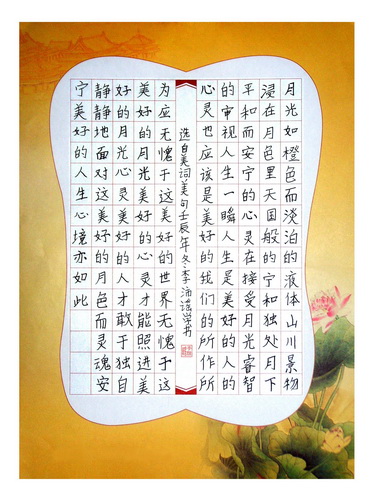 月光如橙色而淡泊的液体山川景物
浸在月色里天国般的宁和独处月下
平和而安宁的心灵在接受月光睿智
的审视人生一瞬人生是美好的人的
心灵也应该是美好的我们的所作所
为应无愧于这美好的世界无愧于这
美好的月光美好的心灵才能照进美
好的月光心灵美好的人才敢于独自
静静地面对这美好的月色而灵魂安
宁美好的人生心境亦如此
选自美词美句壬辰年冬·李沛谣学书